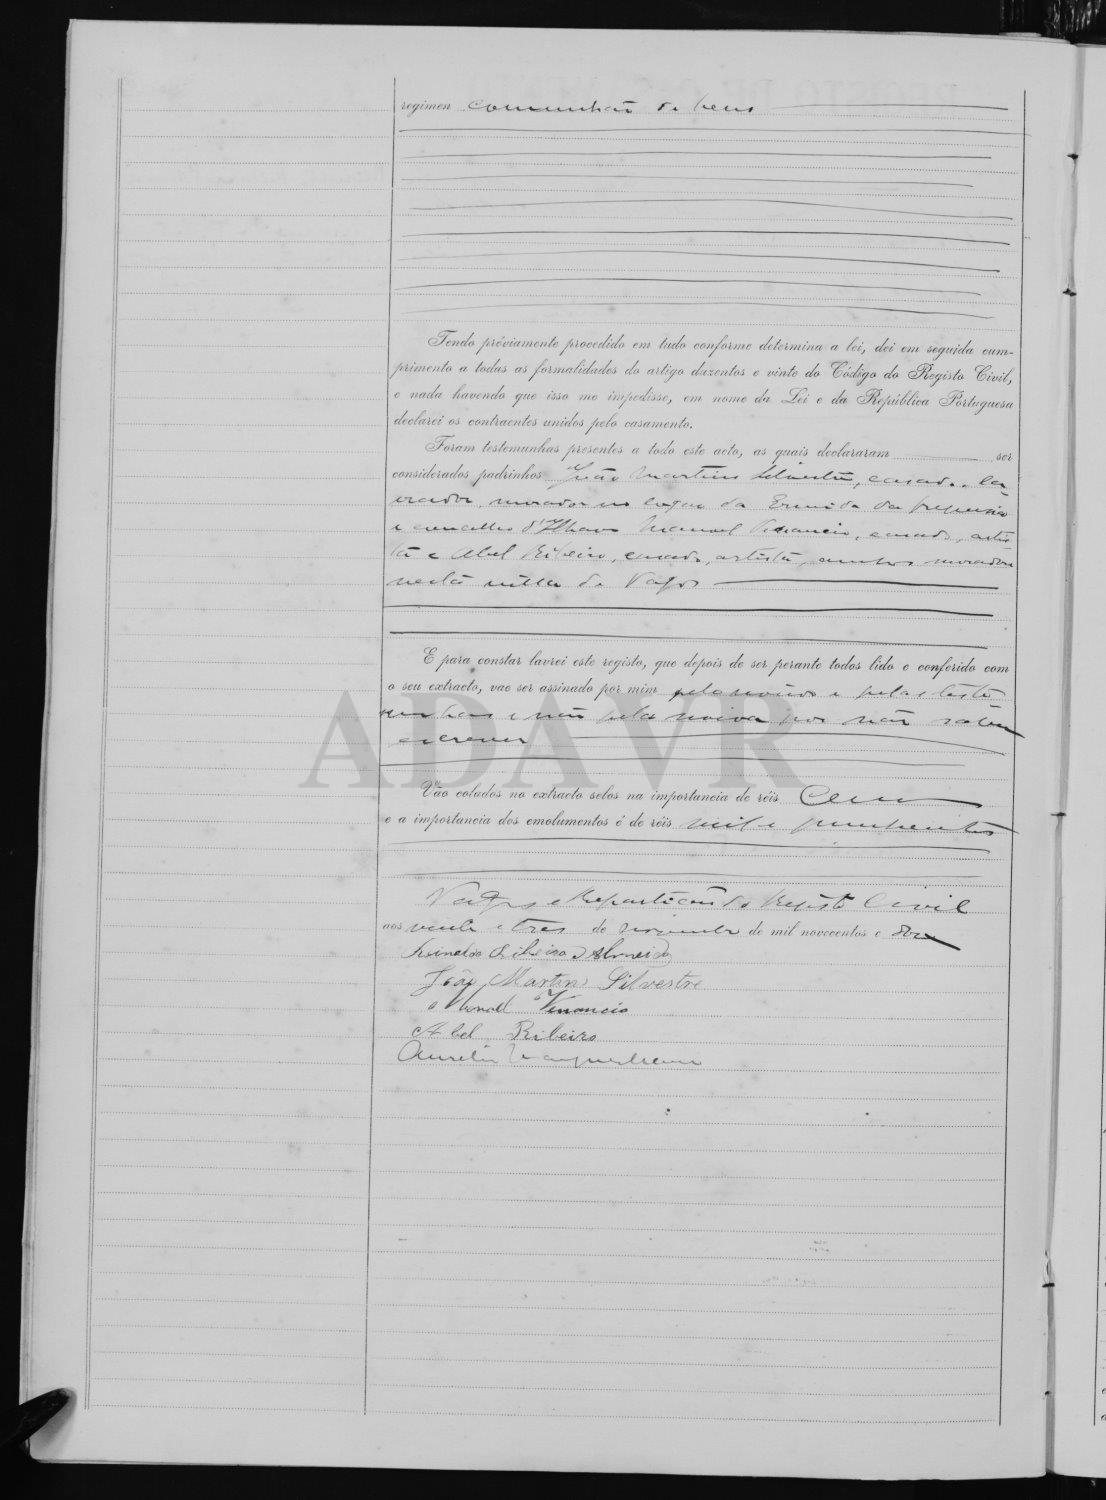 regimen comunhão de bens
Tendo préviamente procedido em tudo conforme determina a lei, dei em seguida cum-
primento a todas as formalidades do artigo duzentos e vinte do Código do Registo Civil,
e nada havendo que isso me impedisse, em nome da Lei e da República Portuguesa
declarei os contraentes unidos pelo casamento.
Foram testemunhas presentes a todo este acto, as quais declararam ser
considerados padrinhos João Martins Silvestre, casado, la-
vrador, morador no logar da Ermida da freguesia
e concelho d'Ilhavo Manuel Venancio, casado, artis-
ta e Abel Ribeiro, casado, artista, ambos moradores
nesta villa de Vagos
E para constar lavrei este registo, que depois de ser perante todos lido e conferido com
o seu extracto, vae ser assinado por mim pelo noivo e pelas teste
munhas e não pela noiva por não saber
escrever
ADAVR
Vão colados no extracto selos na importancia de réis Cem
e a importancia dos emolumentos é de réis mil e quinhentos
Vagos e Repartição do Registo Civil
aos vinte e tres de novembro de mil novecentos e doze
Ribeiro d'Almeida
João Martins Silvestre
Manoel Venancio
Abel Ribeiro